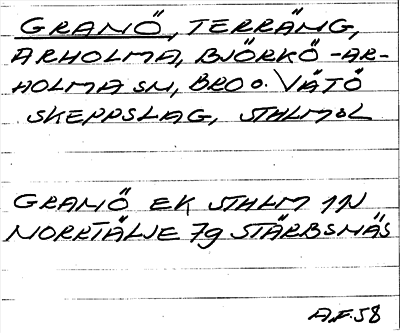 GRANÖ, TERRÄNG,
ARHOLMA, BJÖRKÖ-AR-
HOLMA SN, BRO O. VÄTÖ
SKEPPSLAG, STHLMSL
GRANÖ EK STHLM 1N
NORRTÄLJE 7g STÄRBSNÄS
A.F. 58